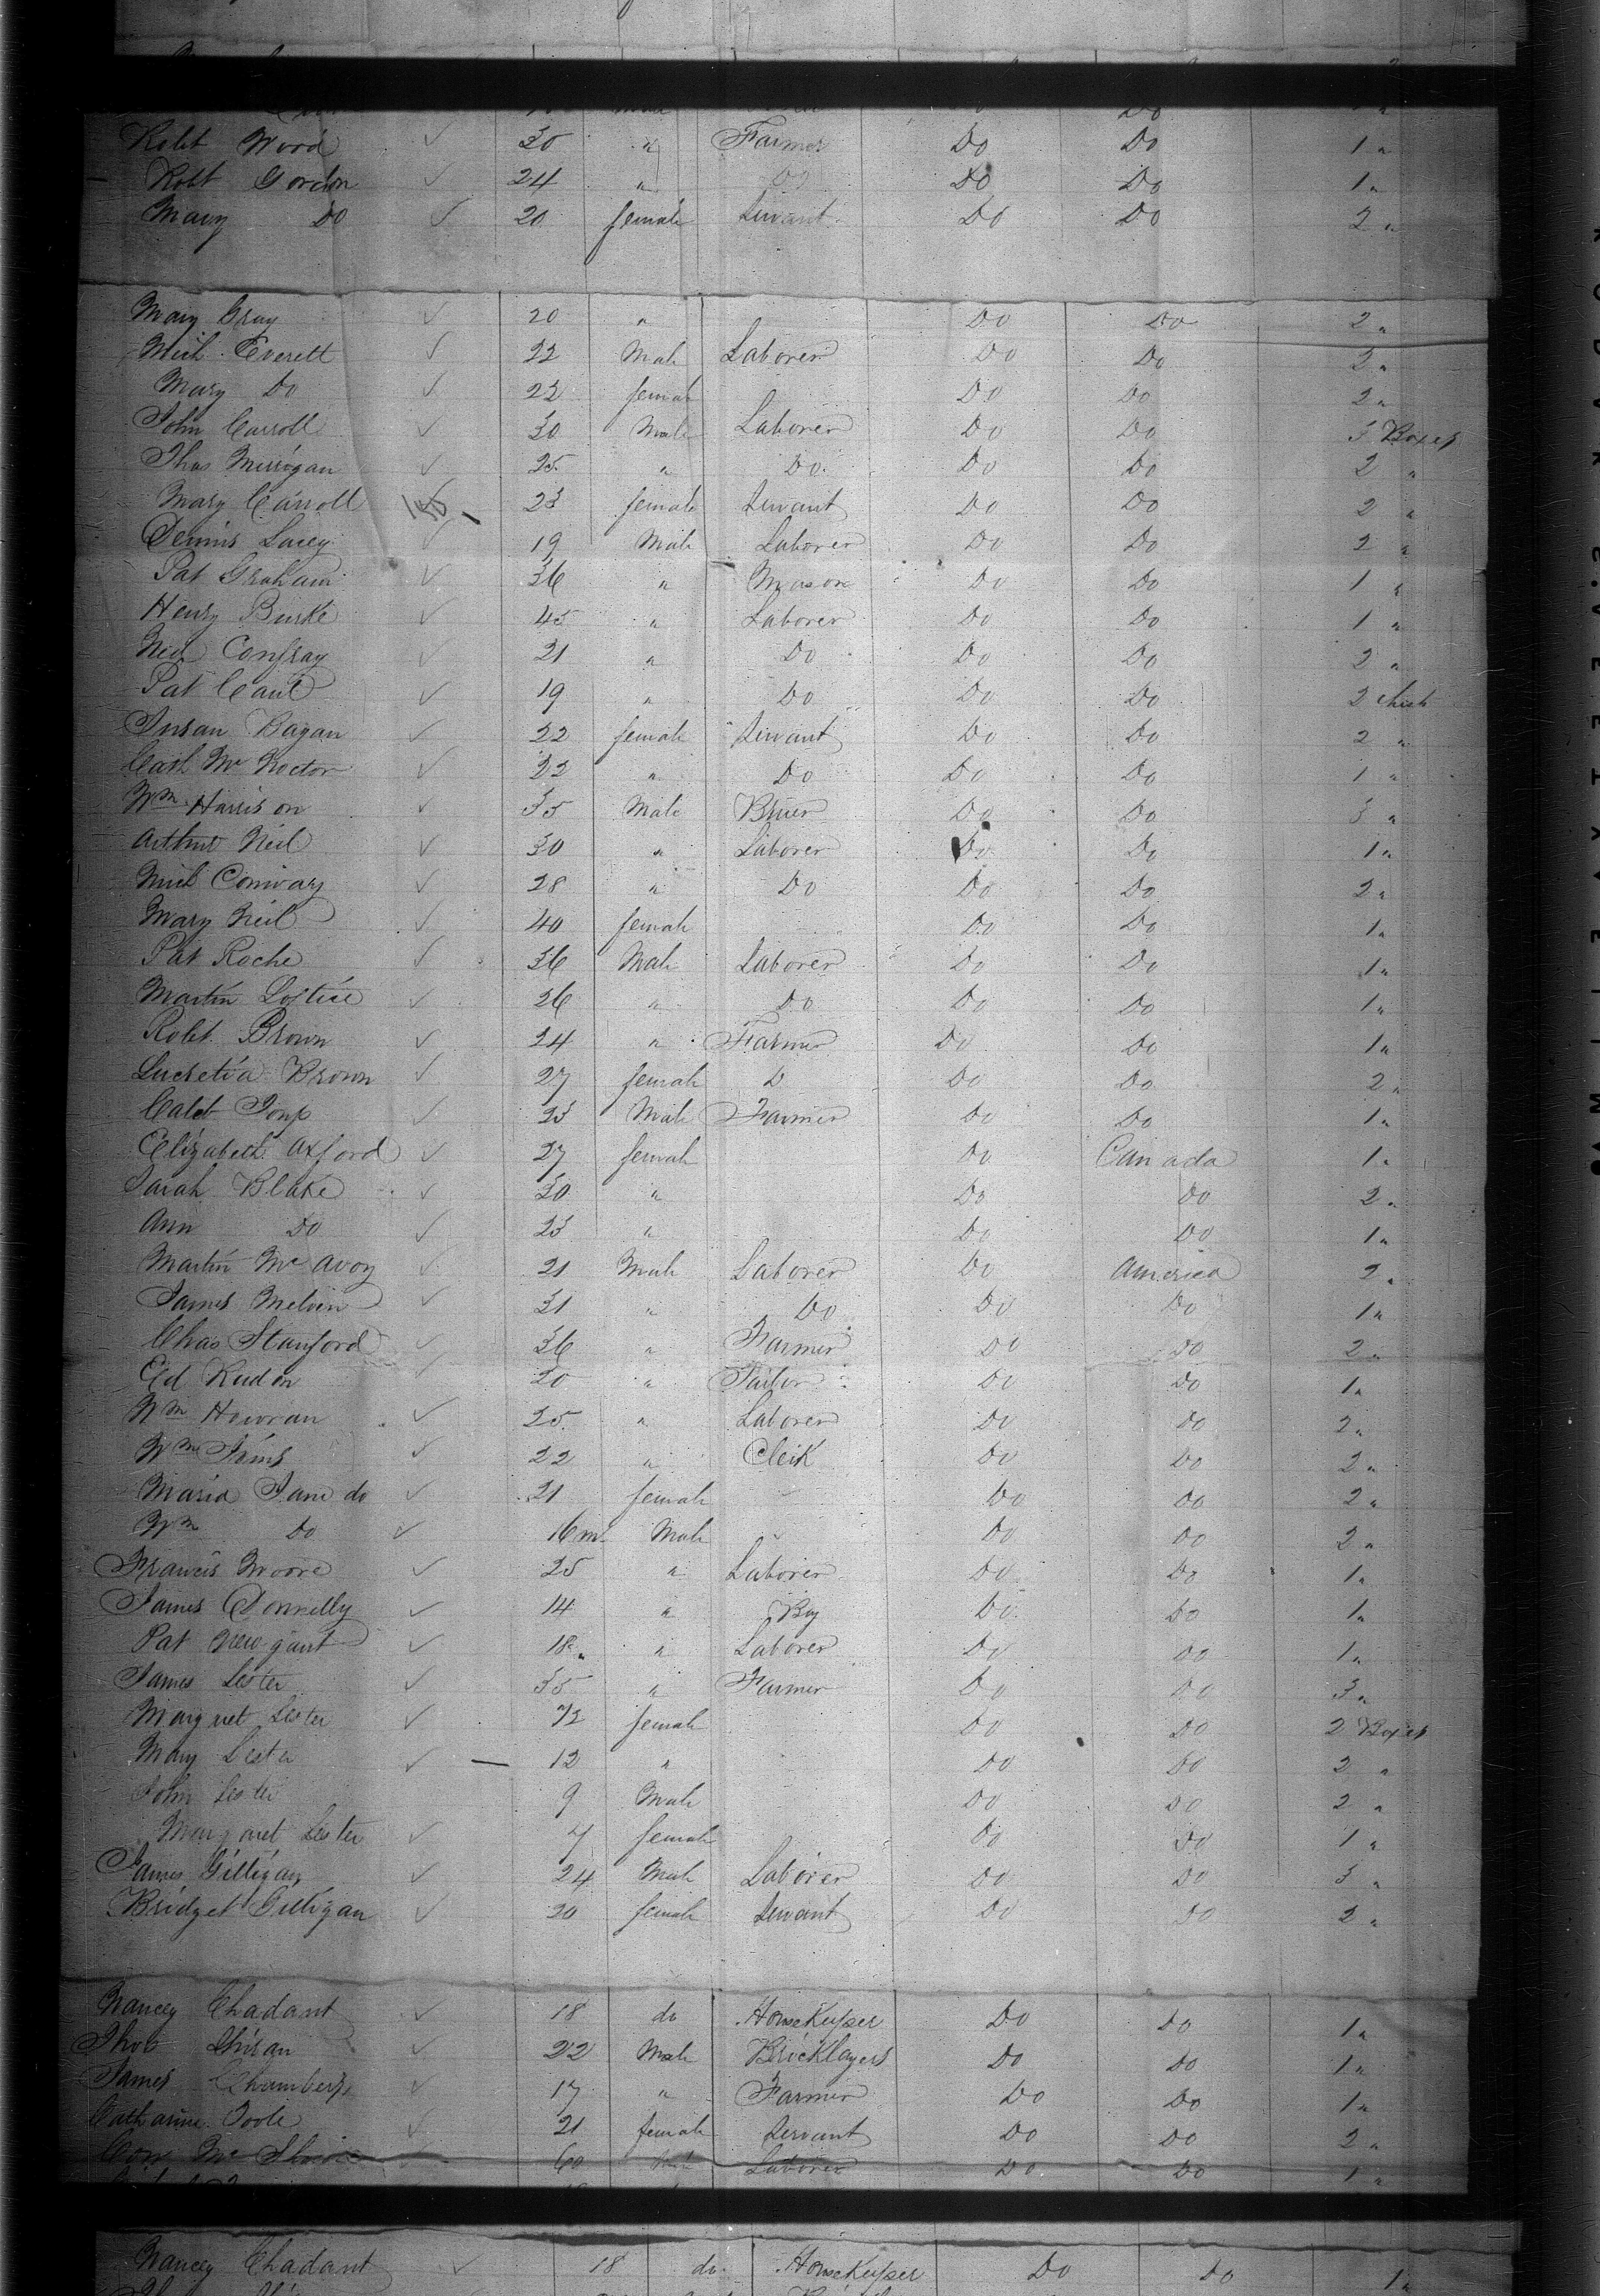 Robt Word ✓ 30 " Farmer Do Do 1 "
Robt Gordon ✓ 24 " Do Do Do 1 "
Mary Do ✓ 20 female Servant Do Do 2 "
Mary Gray ✓ 20 " Do Do 2 "
Mich Everett ✓ 22 Male Laborer Do Do 2 "
Mary Do ✓ 22 female Do Do 2 "
John Carroll ✓ 30 Male Laborer Do Do 3 Boxes
Thos Merrigan ✓ 25 " Do Do Do 2 "
Mary Carroll 23 female Servant Do Do 2 "
Dennis Lacey ✓ 19 Male Laborer Do Do 2 "
Pat Graham ✓ 36 " Mason Do Do 1 "
Henry Burke ✓ 45 " Laborer Do Do 1 "
Confray ✓ 21 " Do Do Do 2 "
Pat ✓ 19 " Do Do Do 2
Susan Bagan ✓ 22 female Servant Do Do 2 "
Cath Mc ✓ 22 " Do Do Do 1 "
Wm Harrison ✓ 35 Male Bruer Do Do 3 "
Arthur Neil ✓ 30 " Laborer Do Do 1 "
Mich Conway ✓ 28 " Do Do Do 2 "
Mary Neil ✓ 40 female Do Do 1 "
Pat Roche ✓ 36 Male Laborer Do Do 1 "
Martin ✓ 26 " Do Do Do 1 "
Robt Brown ✓ 24 " Farmer Do Do 1 "
Lucretia Brown ✓ 27 female D Do Do 2 "
✓ 23 Male Farmer Do Do 1 "
Elizabeth Axford ✓ 27 female Do Canada 1 "
Sarah Blake ✓ 30 " Do Do 2 "
Ann Do ✓ 23 " Do Do 1 "
Martin Mc Avoy ✓ 21 Male Laborer Do America 2 "
James Melvin ✓ 31 " Do Do Do 1 "
Chas Stanford ✓ 36 " Farmer Do Do 2 "
Ed ✓ 20 " Do Do 1 "
Wm Howran ✓ 25 " Laborer Do Do 2 "
Wm ✓ 22 " Clerk Do Do 2 "
Maria Jane do ✓ 21 female Do Do 2 "
Wm Do ✓ 16 m Male Do Do 2 "
Francis Moore ✓ 25 " Laborer Do Do 1 "
James Donnelly ✓ 14 " Boy Do Do 1 "
Pat Newgant ✓ 18 " Laborer Do Do 1 "
James Lester ✓ 35 " Farmer Do Do 3 "
Margret Lester ✓ female Do Do 2 Boxes
Mary Lester ✓ 12 " Do Do 2 "
John Lester 9 Male Do Do 2 "
Margaret Lester ✓ 7 female Do Do 1 "
James Gilligan ✓ 24 Male Laborer Do Do 3 "
Bridget Gilligan ✓ 20 female Servant Do Do 2 "
Nancey Chadant ✓ 18 do HouseKeyser Do Do 1 "
Thos ✓ 22 Male Bricklayers Do Do 1 "
James Chambers ✓ 17 " Farmer Do Do 1 "
Catharine Toole ✓ 21 female Servant Do Do 2 "
Mc 60 Laborer Do Do 1 "
Nancey Chadant ✓ 18 do HouseKeyser Do Do 1 "